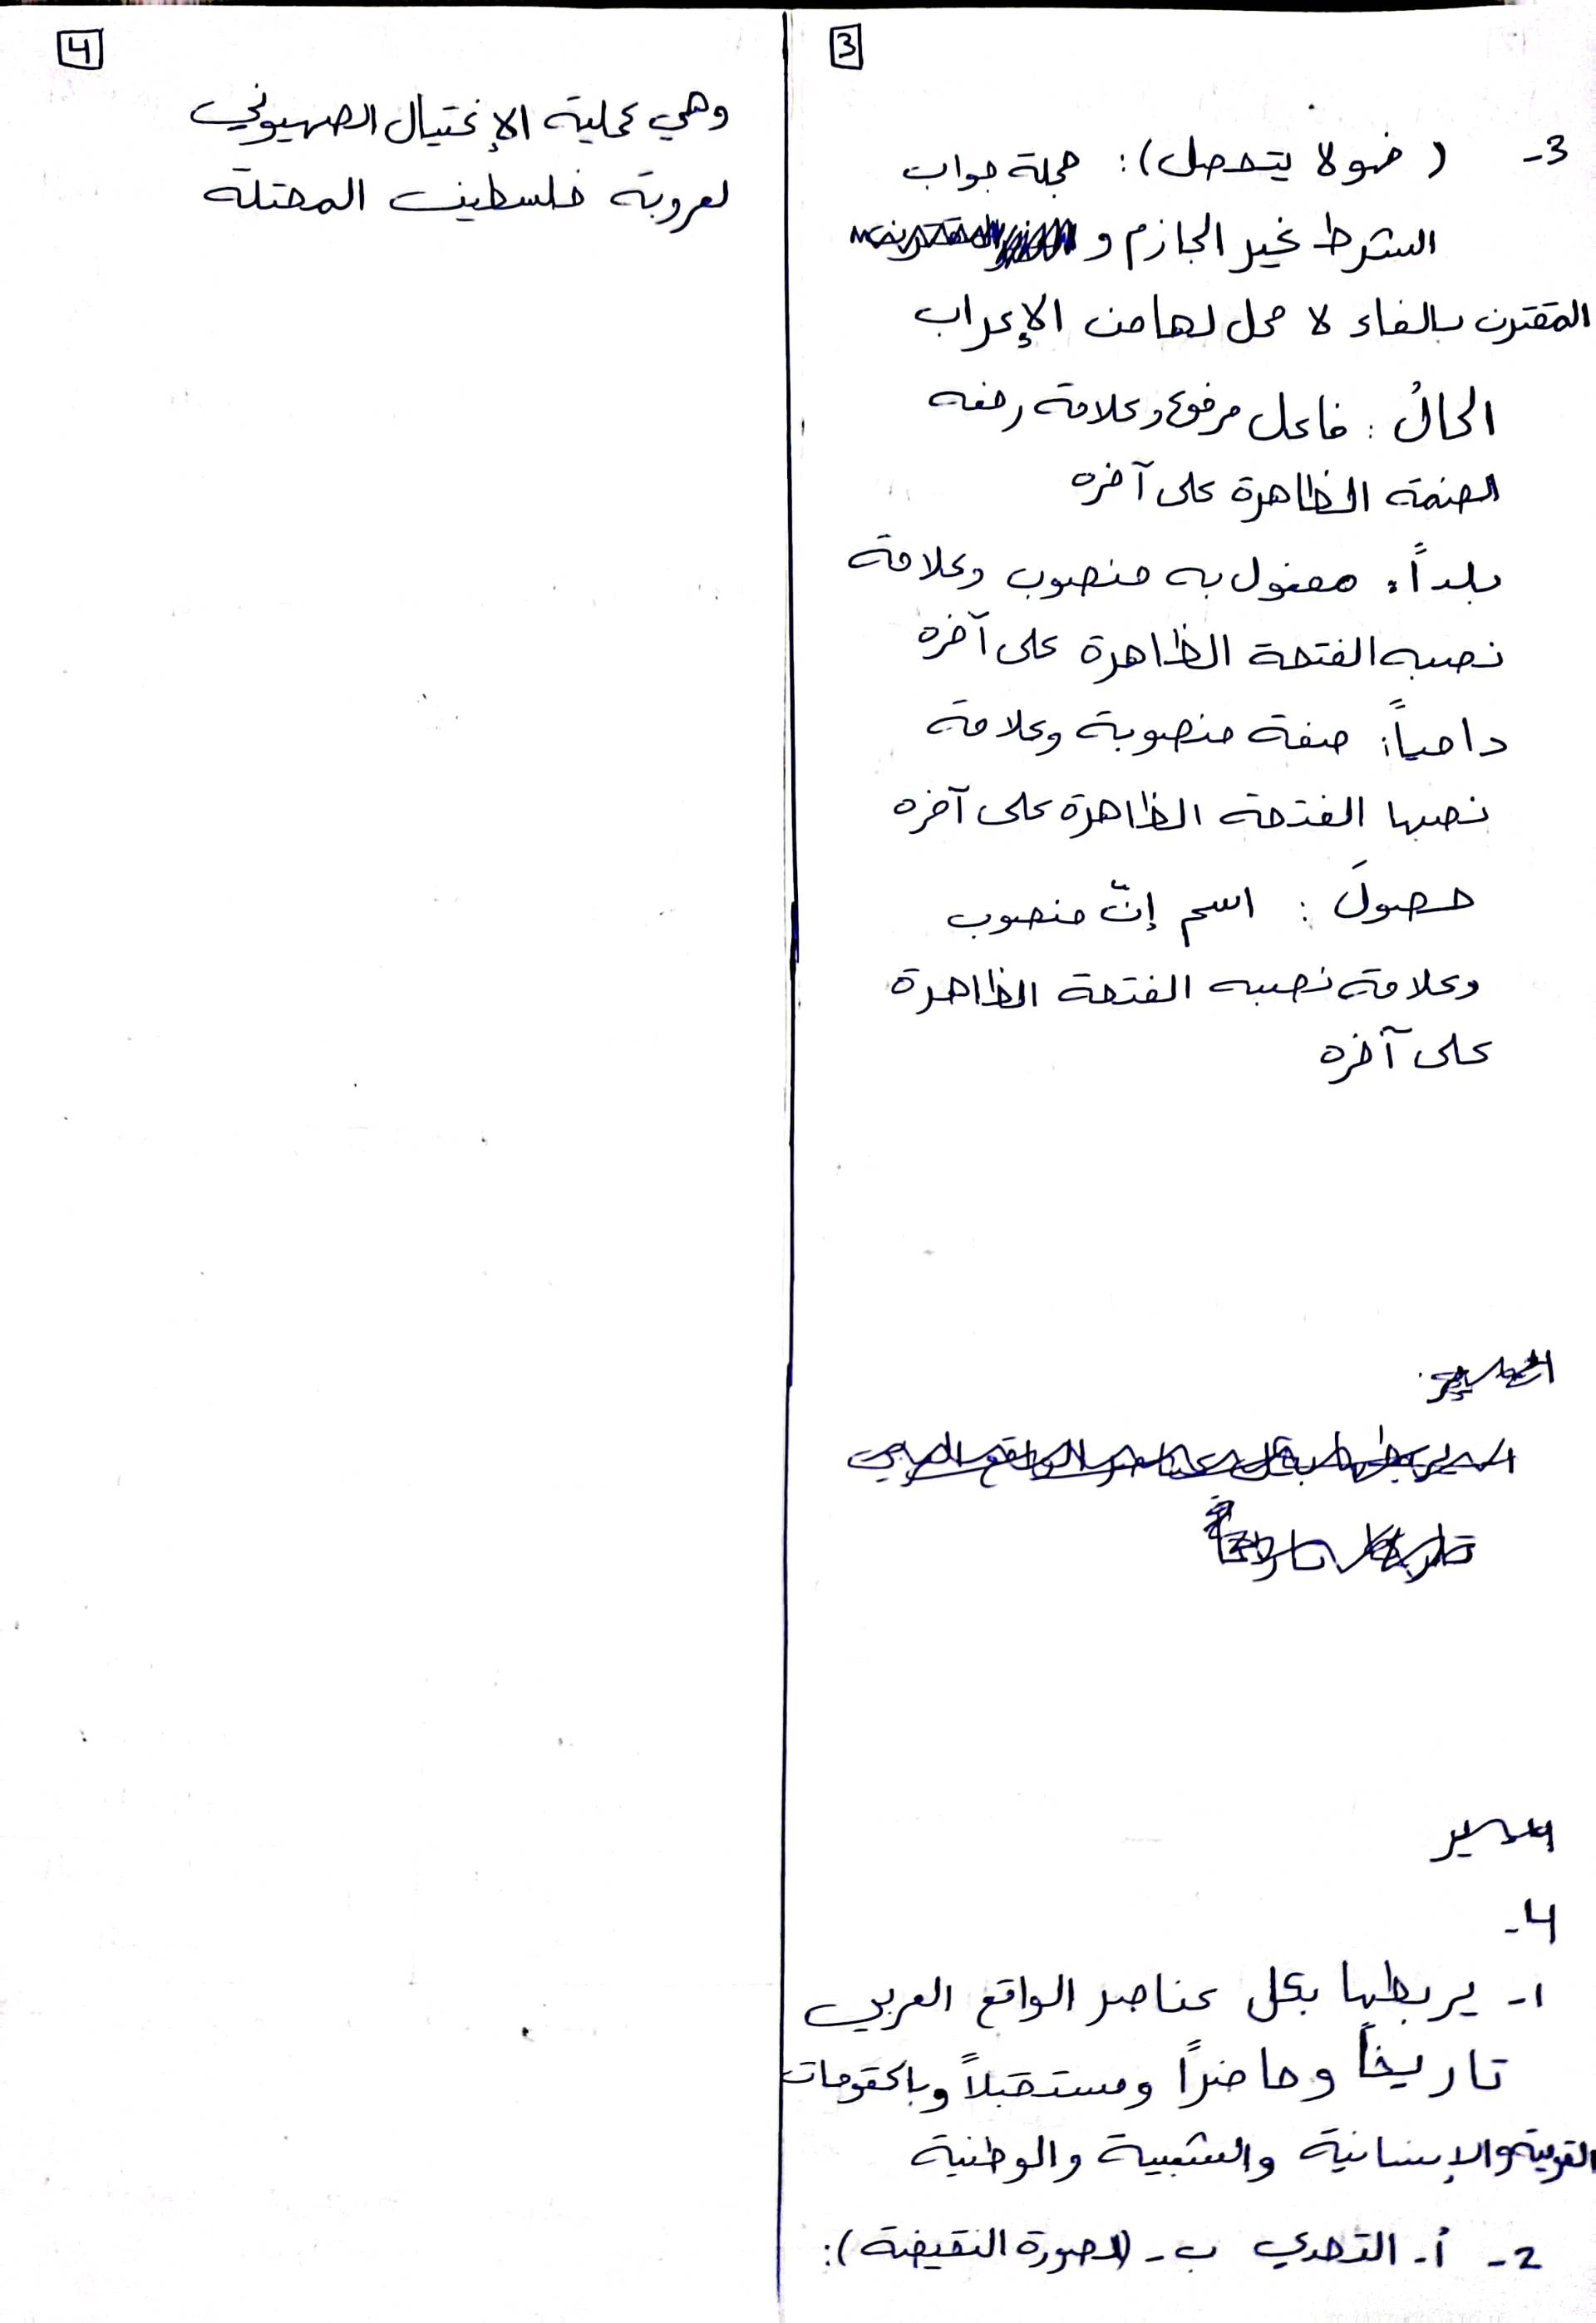 3
3- (فهو لا يتحصل): جملة جواب
الشرط غير الجازم و
المقترن بالفاء لا محل لها من الإعراب
الحالُ : فاعل مرفوع وعلامة رفعه
الضمة الظاهرة على آخره
بلداً: مفعول به منصوب وعلامة
نصبه الفتحة الظاهرة على آخره
دامياً: صفة منصوبة وعلامة
نصبها الفتحة الظاهرة على آخره
حصولَ : اسم إنّ منصوب
وعلامة نصبه الفتحة الظاهرة
على آخره
4-
1- يربطها بكل عناصر الواقع العربي
تاريخاً وحاضراً ومستقبلاً وبالمقومات
القومية والإنسانية والشعبية والوطنية
2- أ- التحدي ب- (الصورة النقيضة):
4
وهي عملية الإغتيال الصهيوني
لعروبة فلسطين المحتلة